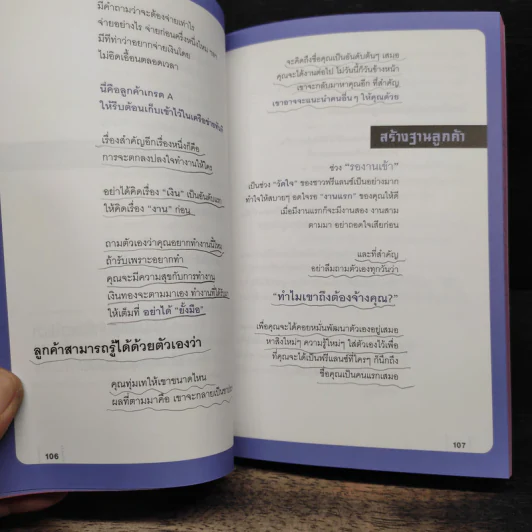 มีคำถามว่าจะต้องจ่ายเท่าไร
จ่ายอย่างไร จ่ายก่อนครึ่งหนึ่งไหม
มีทีท่าว่าอยากจ่ายเงินโดย
ไม่อิดเอื้อนตลอดเวลา
นี่คือลูกค้าเกรด A
ให้รีบต้อนเก็บเข้าไว้ในเครือข่าย
เรื่องสำคัญอีกเรื่องหนึ่งก็คือ
การจะตกลงปลงใจทำงานให้ใคร
อย่าได้คิดเรื่อง "เงิน" เป็นอันดับแรก
ให้คิดเรื่อง "งาน" ก่อน
ถามตัวเองว่าคุณอยากทำงานนี้ไหม
ถ้ารับเพราะอยากทำ
คุณจะมีความสุขกับการทำงาน
เงินทองจะตามมาเอง ทำงานที่ได้รับ
ให้เต็มที่ อย่าได้ "ยั้งมือ"
ลูกค้าสามารถรู้ได้ด้วยตัวเองว่า
คุณทุ่มเทให้เขาขนาดไหน
ผลที่ตามมาคือ เขาจะกลายเป็น
106
จะคิดถึงชื่อคุณเป็นอันดับต้นๆ เสมอ
คุณจะได้งานต่อไป ไม่วันนี้ก็วันข้างหน้า
เขาจะกลับมาหาคุณอีก ที่สำคัญ
เขาอาจจะแนะนำคนอื่นๆ ให้คุณด้วย
สร้างฐานลูกค้า
ช่วง "รองานเข้า"
เป็นช่วง "วัดใจ" ของชาวฟรีแลนซ์เป็นอย่างมาก
ทำใจให้สบายๆ อดใจรอ "งานแรก" ของคุณให้ดี
เมื่อมีงานแรกก็จะมีงานสอง งานสาม
ตามมา อย่าถอดใจเสียก่อน
และที่สำคัญ
อย่าลืมถามตัวเองทุกวันว่า
"ทำไมเขาถึงต้องจ้างคุณ?"
เพื่อคุณจะได้คอยหมั่นพัฒนาตัวเองอยู่เสมอ
หาสิ่งใหม่ๆ ความรู้ใหม่ๆ ใส่ตัวเองไว้เพื่อ
ที่คุณจะได้เป็นฟรีแลนซ์ที่ใครๆ ก็นึกถึง
ชื่อคุณเป็นคนแรกเสมอ
107